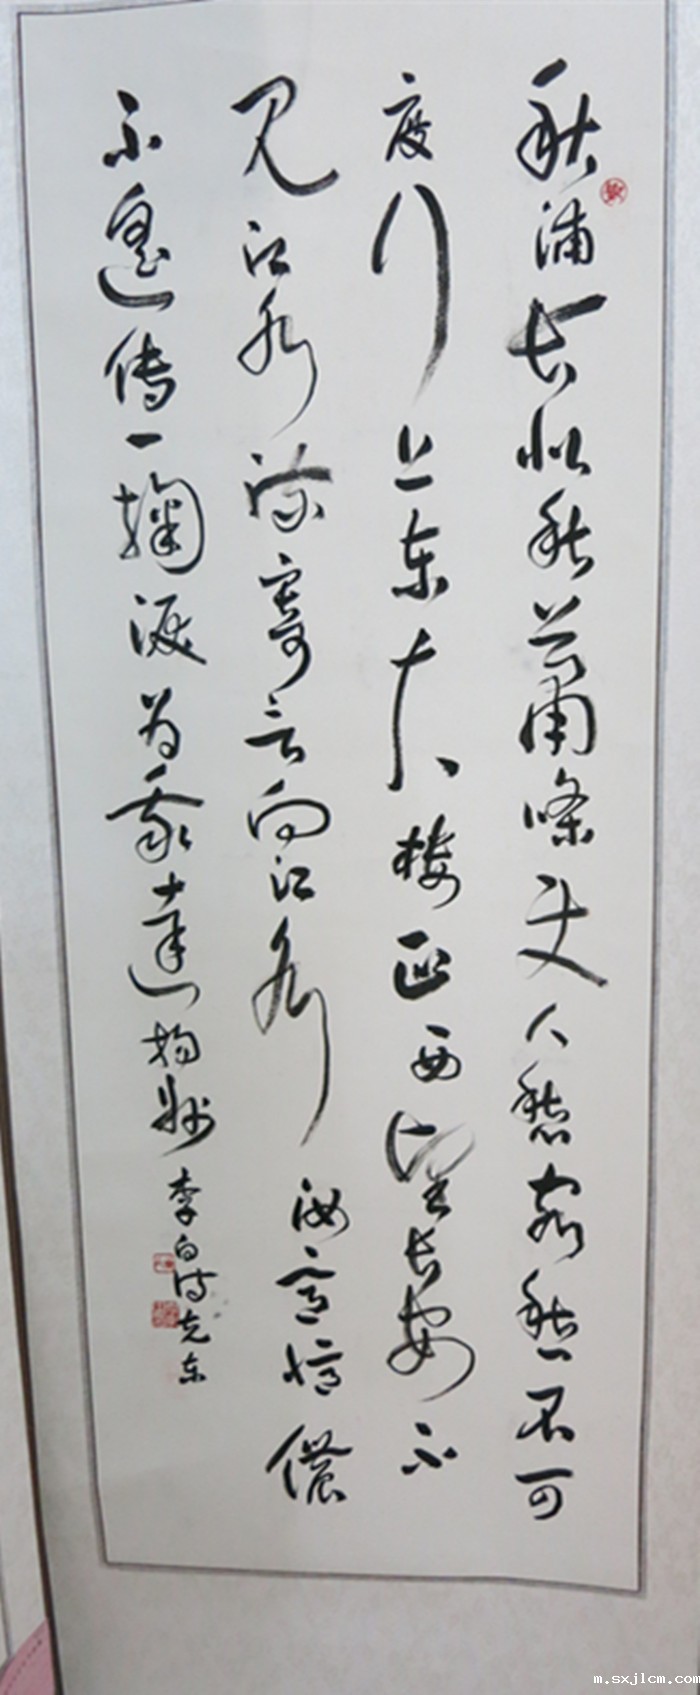 秋浦长似秋萧條使人愁客愁不可
度行上东大楼正西望长安下
见江水流寄言向江水汝意憶儂
不遥传一掬淚为我達扬州
李白诗克东
m.sxjlcm.com